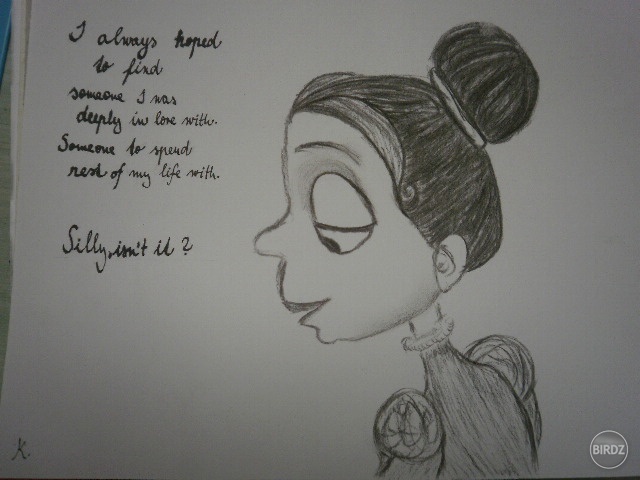 I always hoped
to find
someone I was
deeply in love with.
Someone to spend
rest of my life with.
Silly, isn't it?
K.
BIRDZ